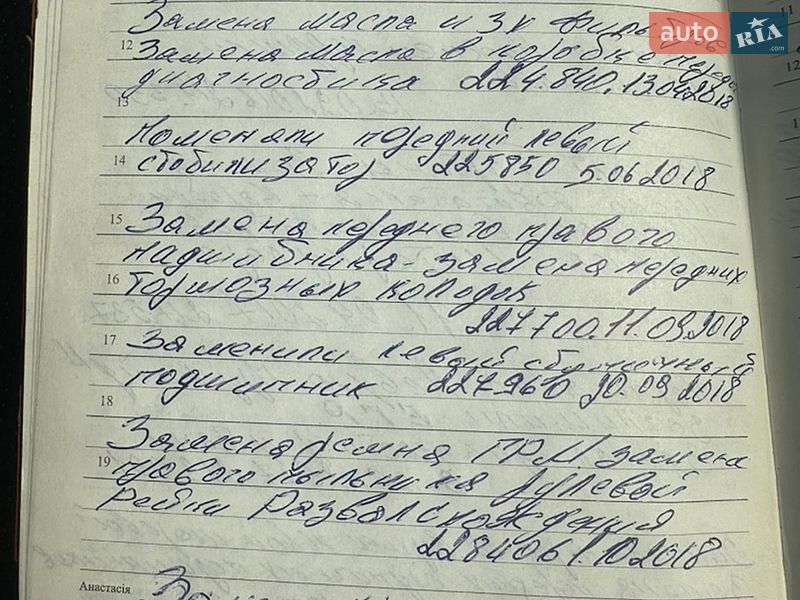 Замена масла и 3х филь
auto RIA .com
12 Замена масла в коробке перед
диагностика 224.840. 13.04.2018
13
Поменяли передний левый
14 стобилизатор 225850 5.06 2018
15 Замена переднего правого
подшибника - замена передних
16 тормозных колодок
227700. 11.09.2018
17 Заменили левый подшипник 227960 20.09 2018
18
Замена ремня ГРМ замена
19 правого пыльника рулевой
рейки Развал схождения
228406 1.10.2018
Анастасія
11
12
1